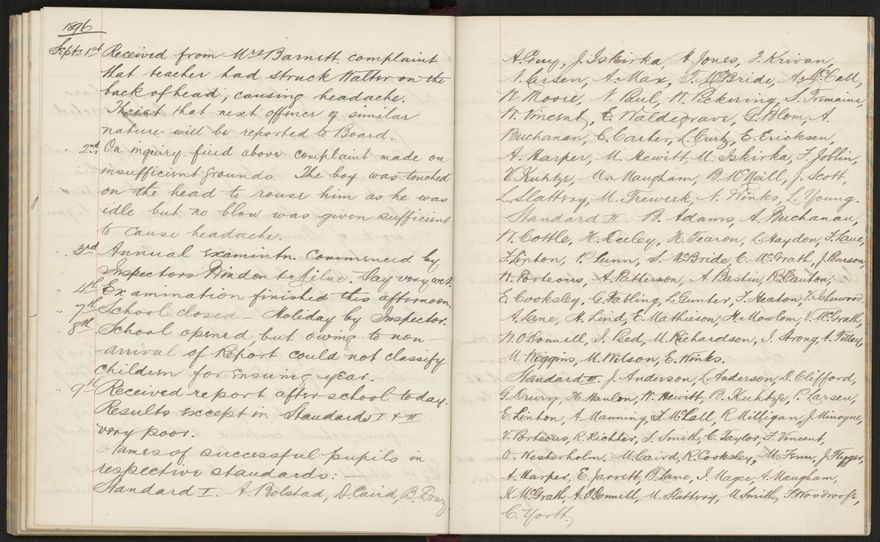 1896
Sept. 1st Received from Mrs Barnett complaint
that teacher had struck Walter on the
back of head, causing headache.
Threat that next offence of similar
nature will be reported to Board.
2nd On inquiry find above complaint made on
insufficient grounds. The boy was touched
on the head to rouse him as he was
idle but no blow was given sufficient
to cause headache.
" 3rd Annual examintn. commenced by
Inspectors Hindon & Milne. Day very wet.
" 4th Examination finished this afternoon.
" 7th School closed - Holiday by Inspector.
" 8th School opened, but owing to non-
arrival of Report could not classify
children for ensuing year.
" 9th Received report after school today.
Results except in Standards I & II
very poor.
Names of successful pupils in
respective standards:
Standard I. A. Bolstad, D. Caird, B. Bray
A. Guy, J. Iskirka, A. Jones, F. Krivan,
N. Larsen, A. Max, T. McBride, A. McCall,
W. Moore, N. Paul, W. Pickering, S. Tremaine,
W. Vincent, E. Waldegrave, G. Blom, A.
Buchanan, C. Carter, L. Curtz, E. Ericksen,
A. Harper, M. Hewitt, M. Iskirka, F. Joblin,
V. Kuhtze, M. Maugham, B. McNeill, J. Scott,
L. Slattery, M. Trewerk, N. Winks, L. Young.
Standard II. B. Adams, A. Buchanan,
W. Cottle, H. Deeley, H. Fearon, L. Haydon, F. Lane,
F. Linton, P. Lunn, S. McBride, C. McGrath, J. Parson,
W. Porteous, A. Patterson, A. Bestin, R. Cauton,
E. Cooksley, G. Fabling, L. Gunter, F. Heaton, V. Isherwood,
A. Lane, A. Lind, E. Mathieson, H. Mowlem, V. McGrath,
N. O'Donnell, I. Reed, M. Richardson, I. Strong, A. Tilley,
M. Wiggins, M. Wilson, E. Winks.
Standard III. J. Anderson, L. Anderson, D. Clifford,
G. Drury, H. Hanlon, W. Hewitt, R. Kuhtze, P. Larsen,
E. Linton, A. Manning, F. McCall, R. Milligan, J. Minogue,
V. Porteous, R. Richter, F. Smith, C. Taylor, F. Vincent,
O. Westerholm, M. Caird, R. Cooksley, M. Fenn, J.
A. Harper, E. Jarrett, B. Lane, I. Magee, A. Maugham,
K. McGrath, A. O'Donnell, M. Slattery, M. Smith, F. Woodroofe,
C. Yortt,